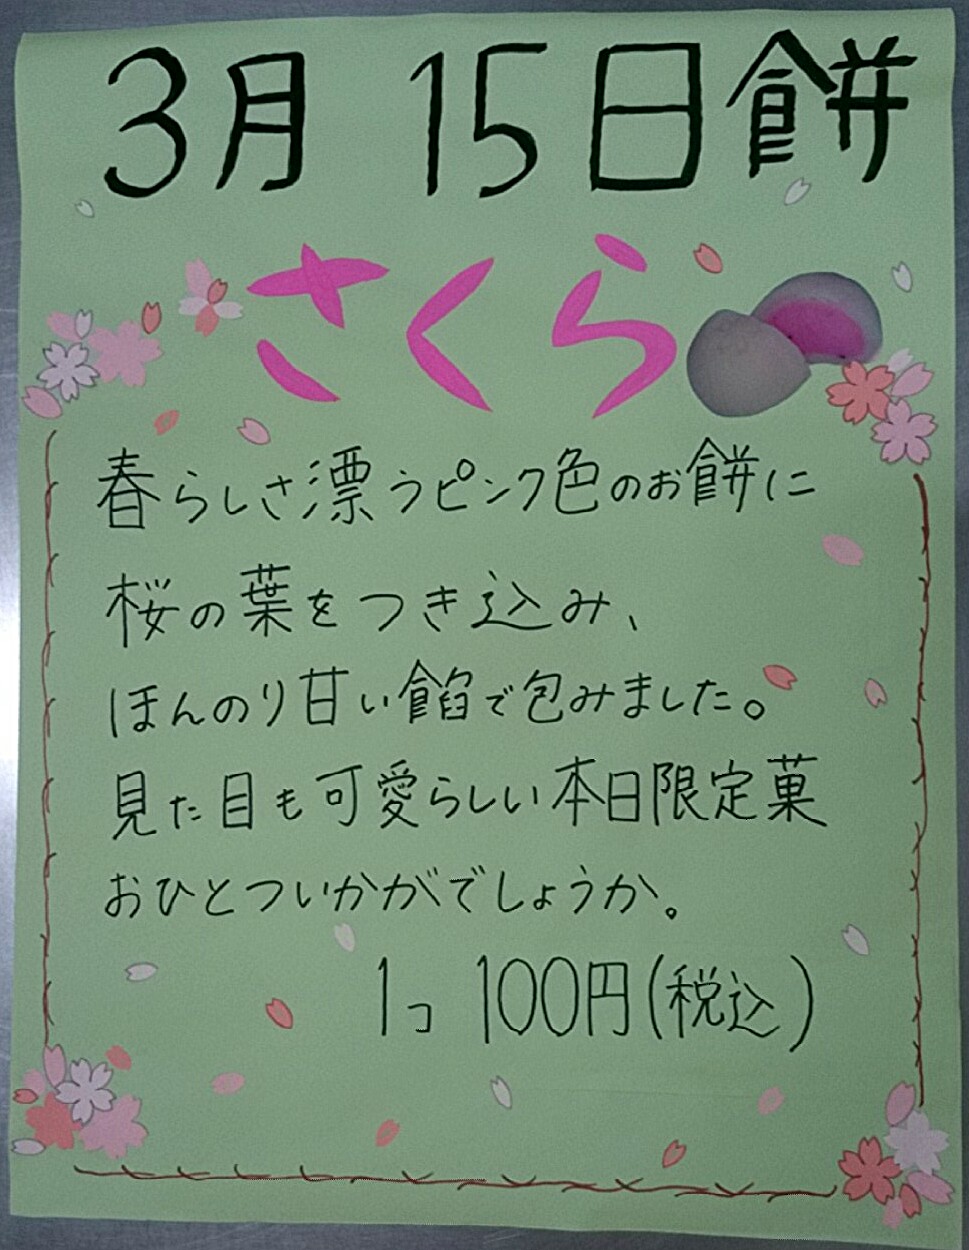 3月 15日餅
さくら
春らしさ漂うピンク色のお餅に
桜の葉をつき込み、
ほんのり甘い餡で包みました。
見た目も可愛らしい本日限定菓
おひとついかがでしょうか。
1コ 100円(税込)